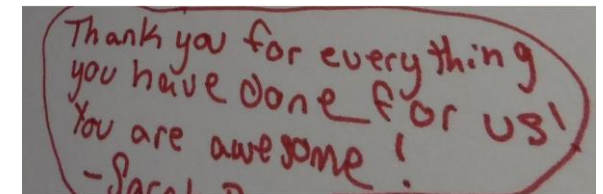 Thank you for everything
you have done for us!
You are awesome!